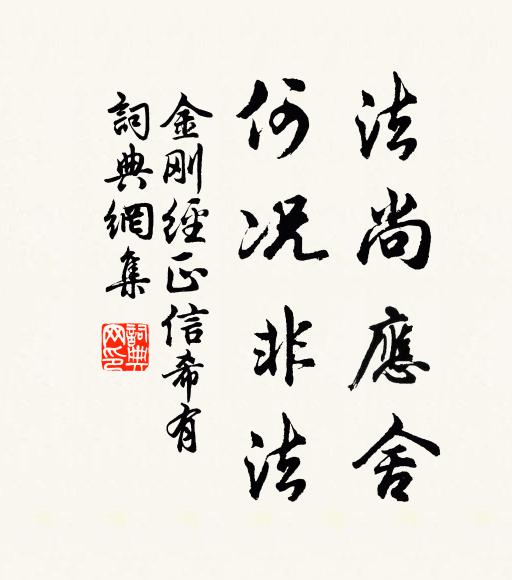 法尚應舍
何況非法
金剛經正信希有
詞典網集
詞典网印